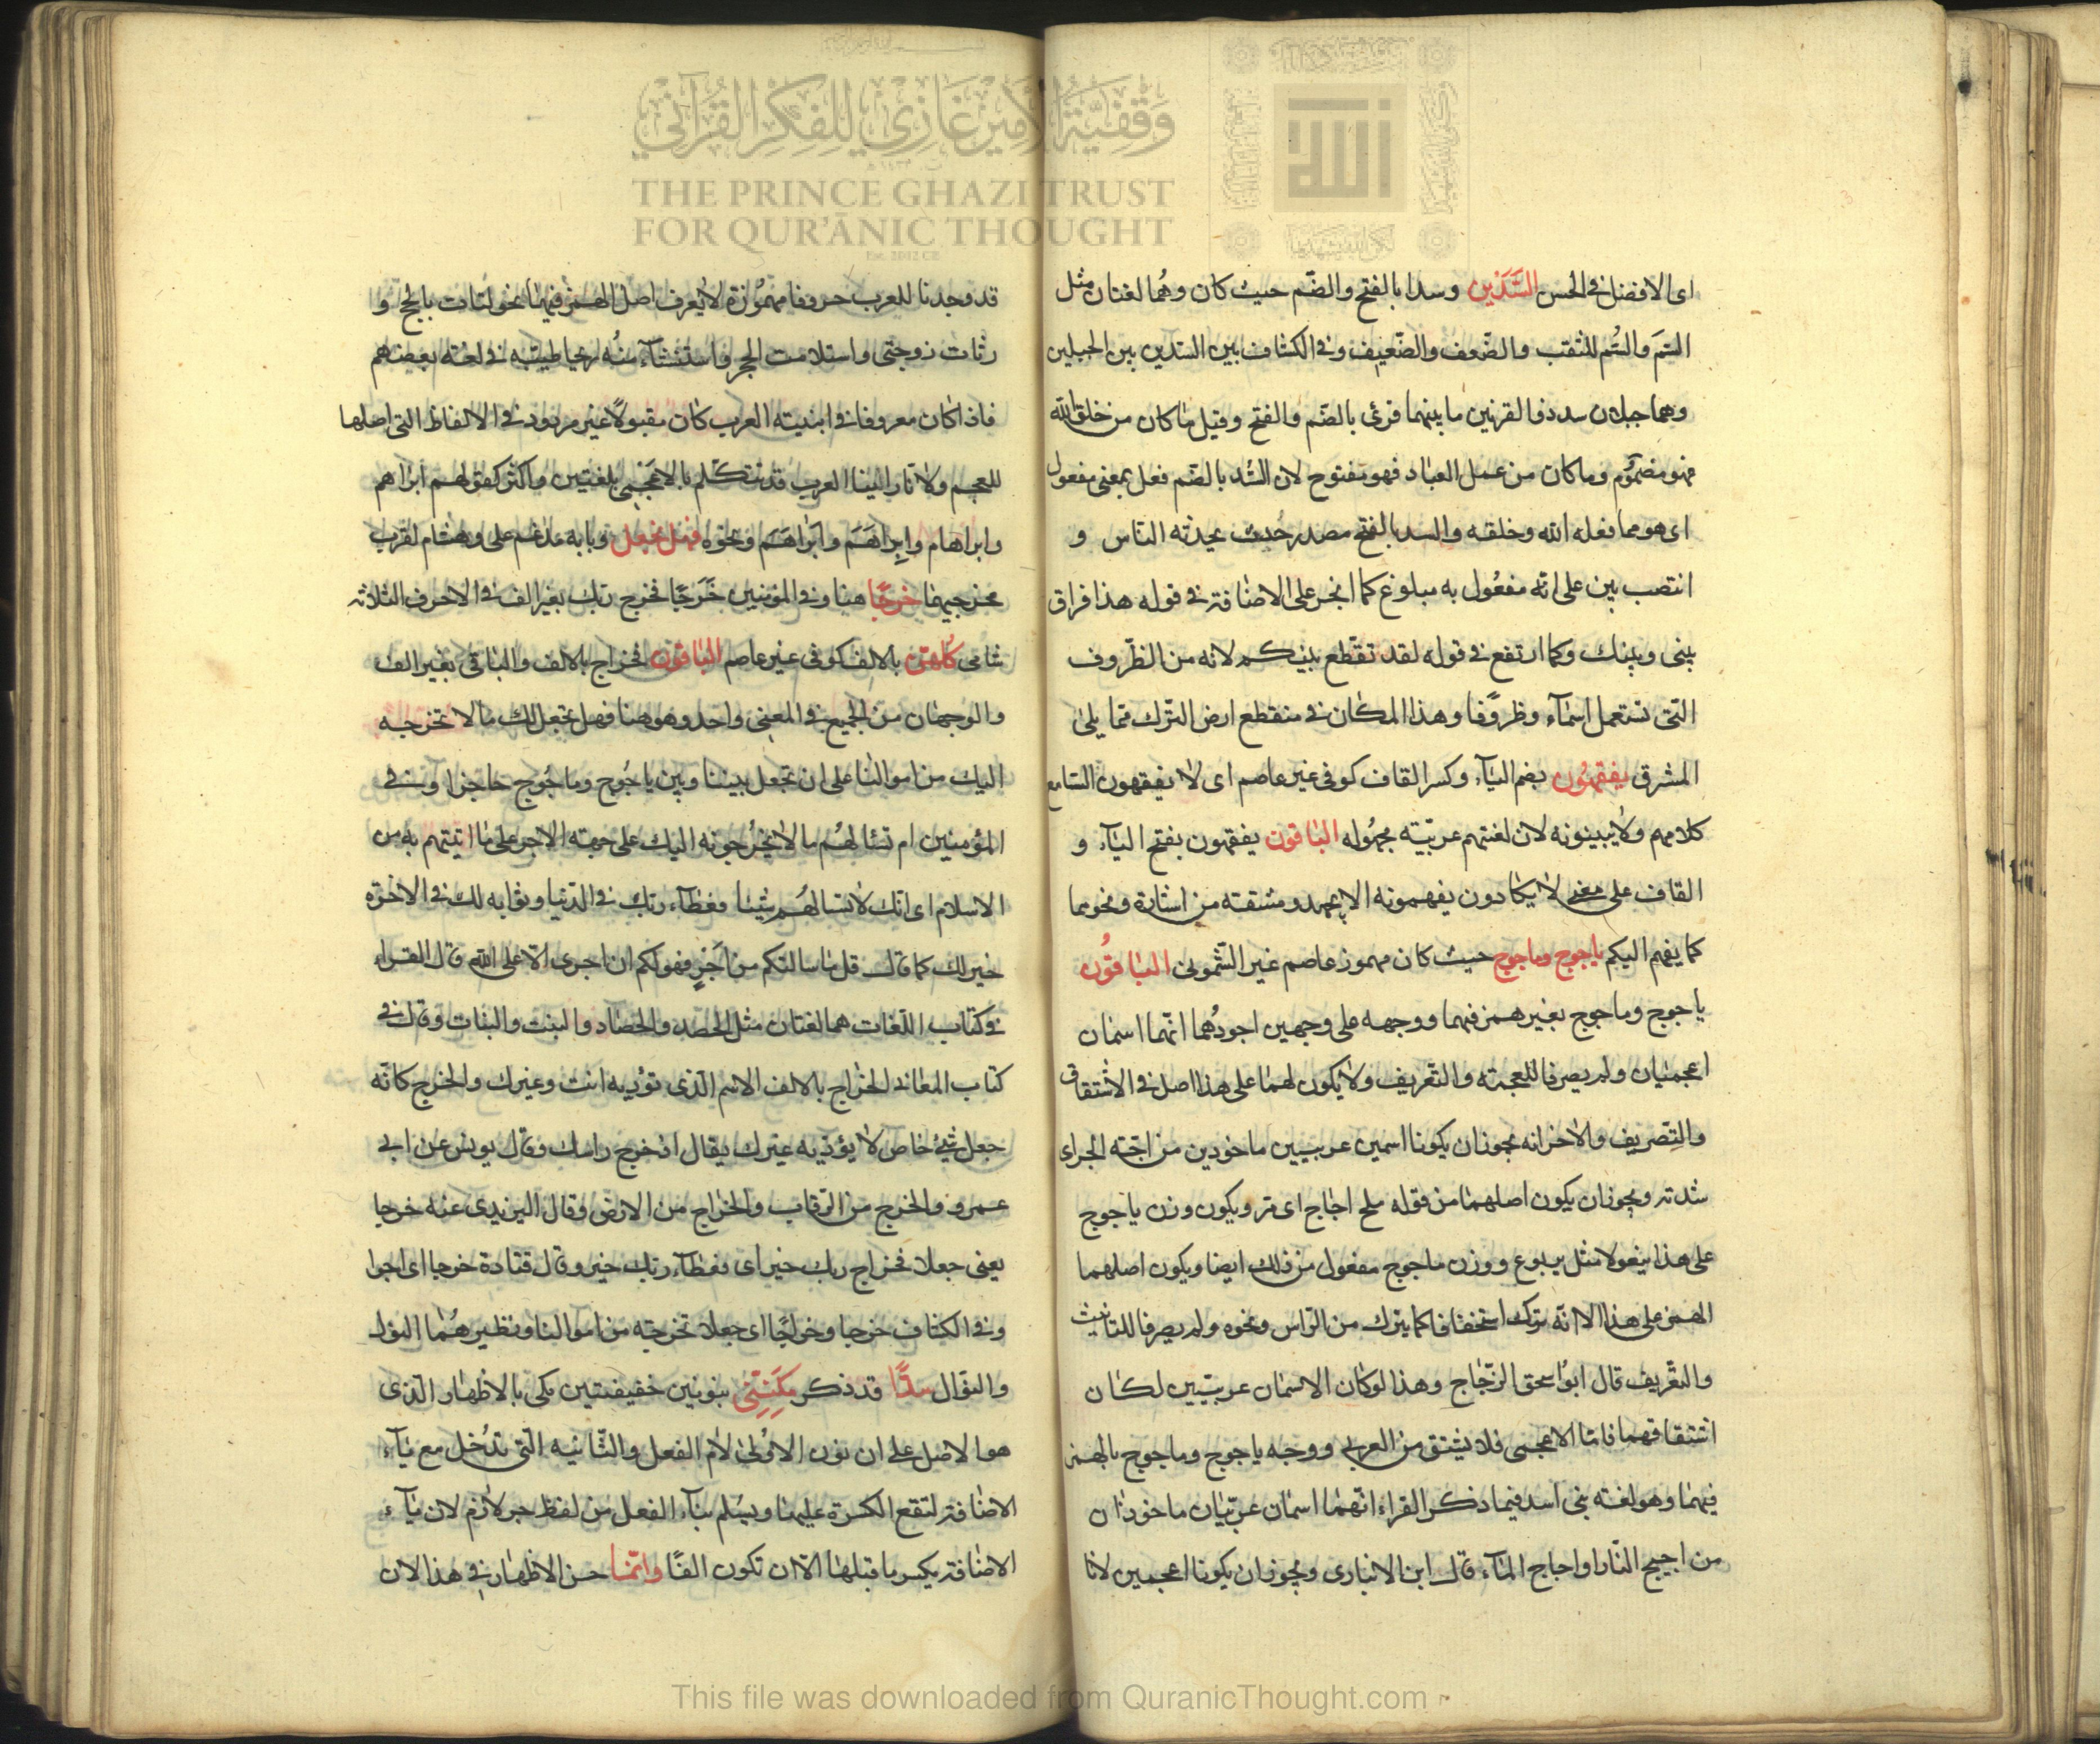 وقفية الأمير غازي للفكر القرآني
THE PRINCE GHAZI TRUST
FOR QUR'ĀNIC THOUGHT
Est. 2012 CE
اى الافضل فى الحسن السَّدَّين وسدا بالفتح والضّم حيث كان وهُما لغتان مثل
السَم والسُم للثقب والضّعف والضّعيف وفى الكشاف بين السدين بين الجبلين
وهما جبلان سد ذوالقرنين ما بينهما قرئ بالضّم والفتح وقيل ما كان من خلق الله
فهو مضموُم وما كان من عمل العباد فهو مفتوح لان السُد بالضّم فعل بمعنى مفعول
اى هو مما فعله الله وخلقه والسد بالفتح مصدر حُدث يحدثه الناس و
انتصب بين على انه مفعُول به مبلوغ كما انجر على الاضافة فى قوله هذا فراق
بينى وبينك وكما ارتفع فى قوله لقد تقطع بينكم لانه من الظّروف
التّى تستعمل اسمآء وظروًفا وهذا المكان فى منقطع ارض التّرك ممّا يلى
المشرق يفقهُون بضم اليآء وكسر القاف كوفى غير عاصم اى لا يفقهون السّامع
كلامهم ولا يبينونه لان لغتهم عربيّة مجهُوله الباقون يفقهون بفتح اليآء و
القاف على معنى لا يكادون يفهمونه الا بجهد ومشقته من اشارة ونحوها
كما يفهم اليكم ياجوج وماجوج حيث كان مهموز عاصم غير الشّمونى الباقوُن
ياجوج وماجوج بغير همز فيهما ووجهه على وجهين اجودُهما انّهما اسمان
اعجميان ولم يصرفا للعجمة والتّعريف ولا يكون لهما على هذا اصل فى الاشتقاق
والتصريف والاخر انه يجوز ان يكونا اسمين عربيين ماخوذين من اجّة الحراى
شدته ويجوز ان يكون اصلهما من قوله ملح اجاج اى مّر ويكون وزن ياجوج
على هذا يفعولا مثل يربوع ووزن ماجوج مفعول من ذلك ايضا ويكون اصلهما
الهمز على هذا الا انّه ترك استخفافا كما يترك من الرّاس ونحوه ولم يصرفا للتانيث
والتعّريف قال ابوُاسحق الزّجّاج وهذا لوكان الاسمان عربيّين لكان
اشتقاقهما فامّا الاعجمى فلا يشتق من العربى ووجه ياجوج وماجوج بالهمز
فيهما وهو لغة بنى اسد فيما ذكر الفراء انّهما اسمان عربّيان ماخوذان
من اجيج النّار او اجاج المآء قال ابن الانبارى ويجوز ان يكونا اعجمين لانا
قد وجدنا للعرب حروفا مهموُزة لا يعرف اصل الهمز فيهما نحو لبّات بالحج و
رثات زوجتى واستلامت الحجر واستنشآء منُه ريحا طيبّه فى لغة بعضهم
فاذا كان معروفا فى ابنية العرب كان مقبولًا غير مردود فى الالفاظ التى اصلها
للعجم ولا نا راينا العرب قد تتكلّم بالاعَجَمى بلغتين واكثر كقولهم ابراهم
وابراهام وابِراهَم وابَراهَم ونحوُه فهل نجعل وبابه مدغم على وهشام لقرب
مخرجيهما خرجًا هنا وفى المؤمنين خَرجًا فخرج ربك بغير الف فى الاحرف الثلاثة
شامى كُلهّن بالالف كوفى غير عاصم الباقون فخراج بالالف والباقى بغير الف
والوجهان من الجميع فى المعنى واحد وهو هنا فهل نجعل لك مالا نخرجه
اليك من اموالنا على ان تجعل بيننا وبين ياجُوج وماجُوج حاجزا وفى
المؤمنين ام تسئالهُم مالا يخُرجونه اليك على جهة الاجر على ما اتيتهم به من
الاسلام اى انّك لا تسالهُم شيئا فعطآء ربّك فى الدّنيا وثوابه لك فى الاخرة
خير لك كما قال قل ما سالتكم من اَجَرٍ فهو لكم ان اجرى الّا على الله قال الفراء
فى كتاب اللّغات هما لغتان مثل الحصد والحصاد والبنت والبنات وقال فى
كتاب المعانى الخراج بالالف الاسم الّذى تؤُديه انت وغيرك والخرج كانّه
جعل شئ خاص لا يؤدّيه غيرك يقال اد خرج راسك وقال يونس عن ابى
عمرو والخرج من الرّقاب والخراج من الارض وقال اليزيدى عنه خرجا
يعنى جعلا فخراج ربك خير اى فعطآء ربّك خير وقال قتادة خرجا اى اجرا
وفى الكشاف خرجا وخراجًا اى جعلا نخرجه من اموالنا ونظير هُما النول
والنوّال سدًّا قد ذكر مكَنِنِى بنونين خفيفتين مكى بالاظهار الّذى
هو الاصل على ان نون الاوُلى لام الفعل والثّانيه الّتى تدُخل مع يآء
الاضافة لتقع الكسرة عليها ويسلم بنآء الفعل من لفظ جر لازم لان يآء
الاضافة يكسر ما قبلها الّا ان تكون الفًا وانّما حسن الاظهار فى هذا لان
This file was downloaded from QuranicThought.com